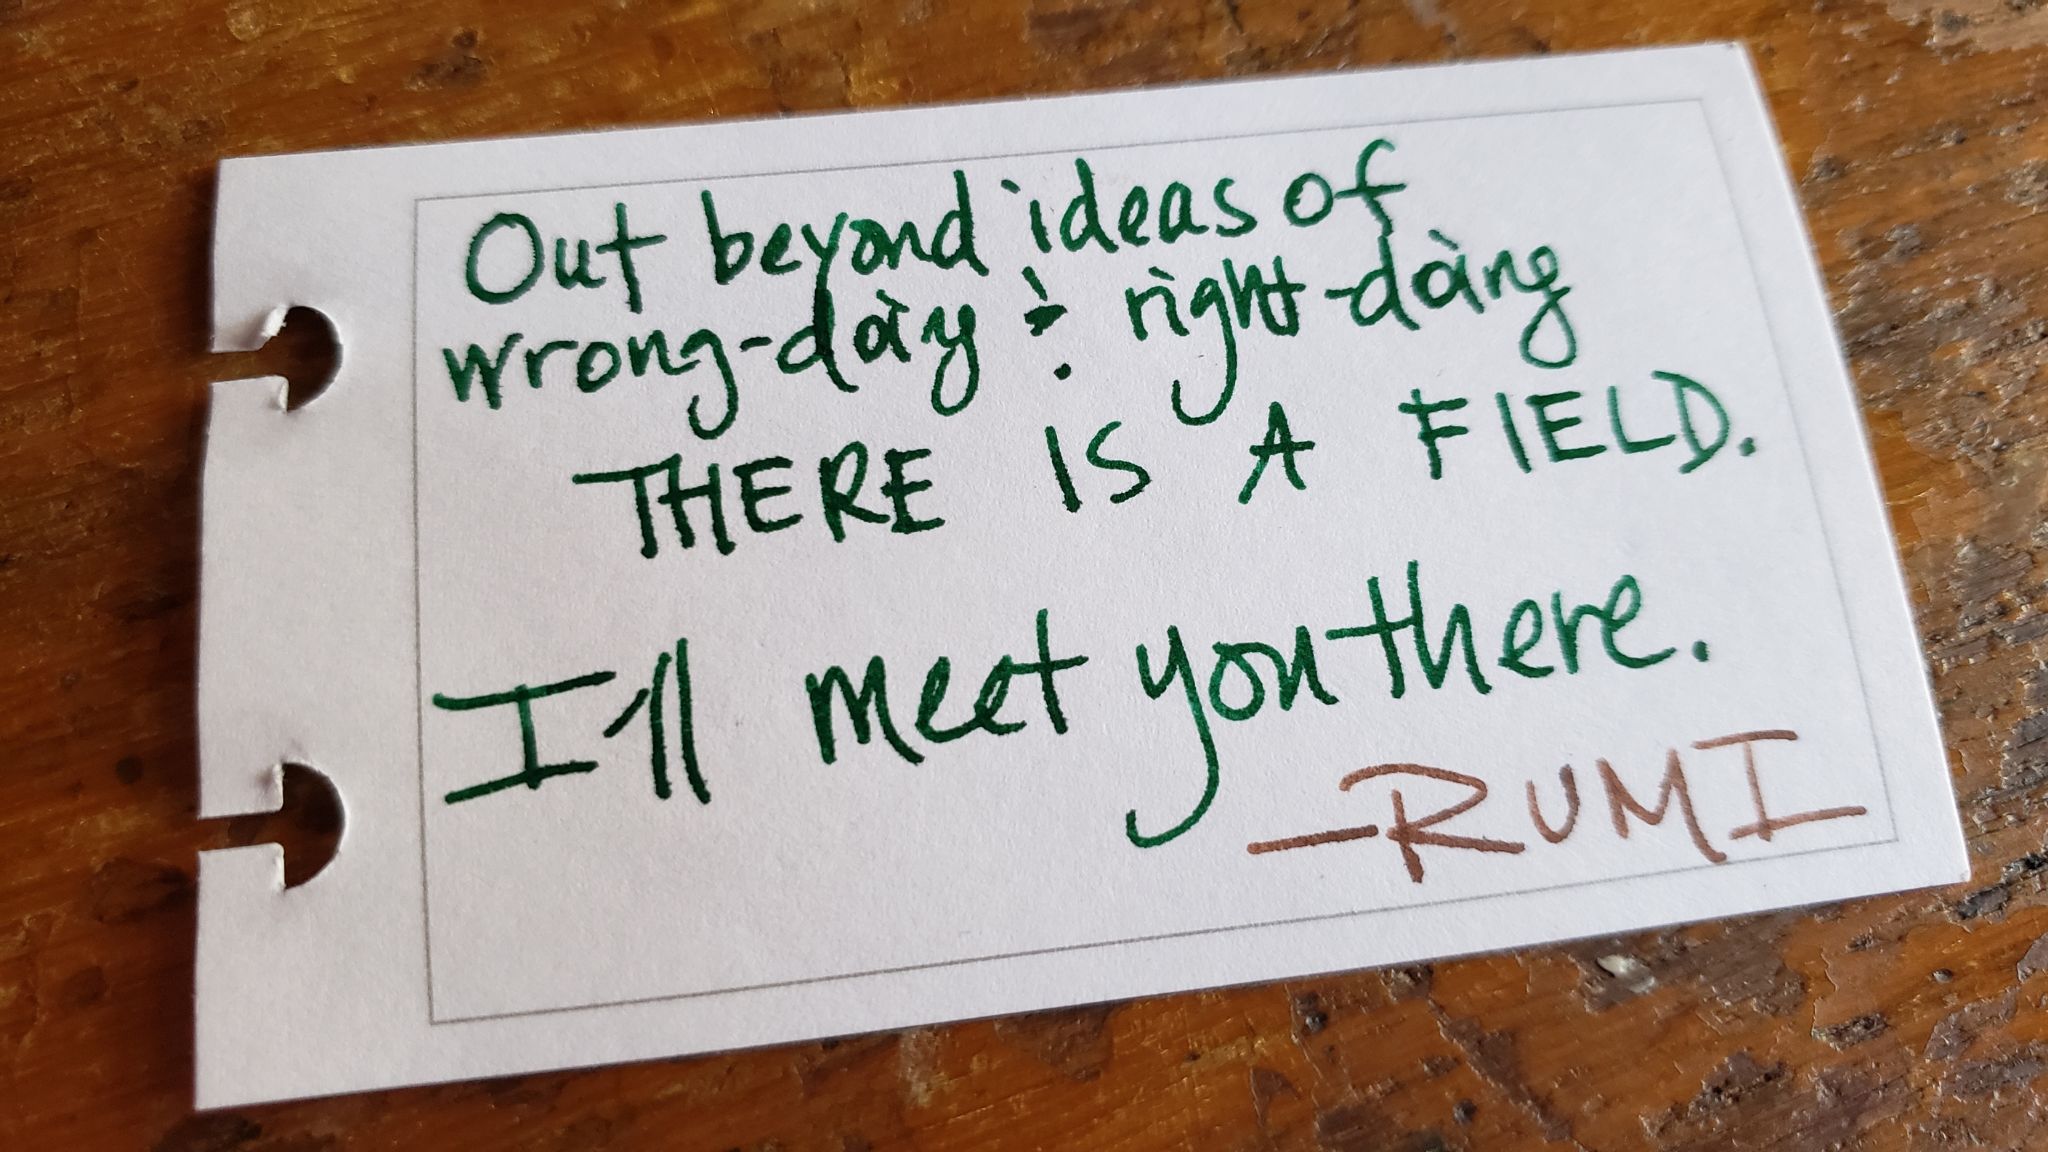 Out beyond ideas of
wrong-doing & right-doing
THERE IS A FIELD.
I'll meet you there.
—RUMI